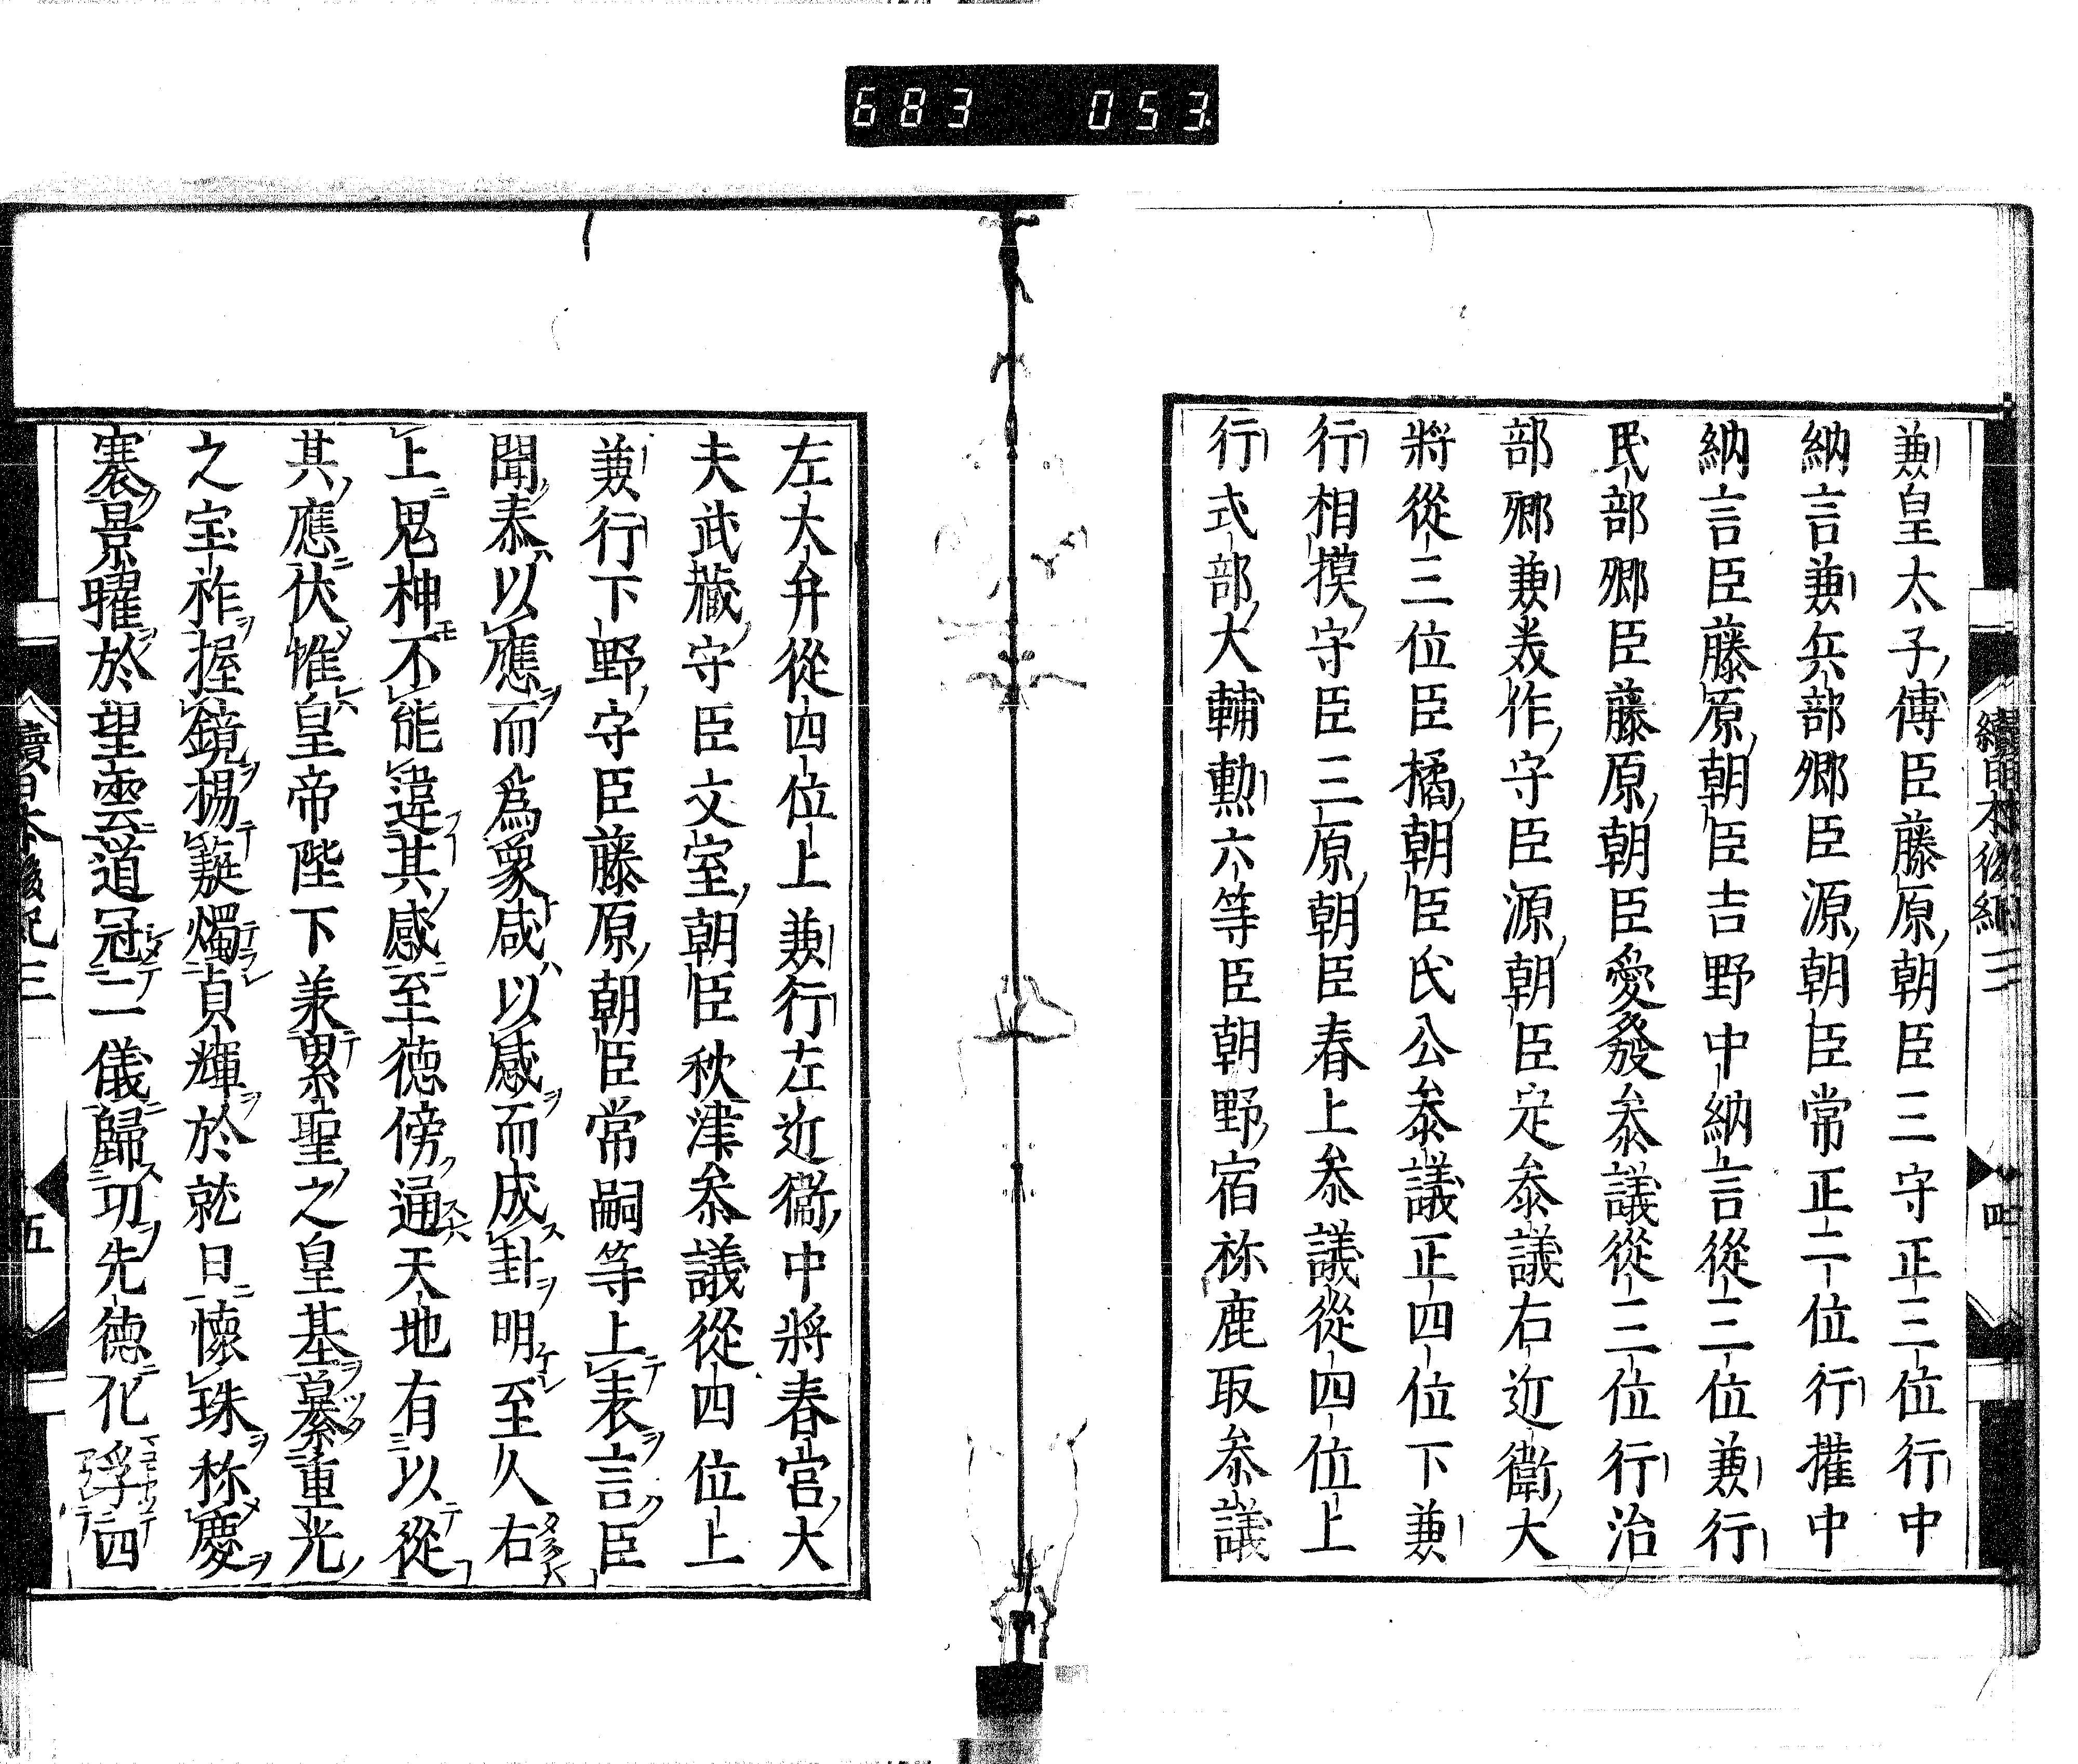 683 053
續日本後紀三 四
兼皇太子傅臣藤原朝臣三守正三位行中
納言兼兵部卿臣源朝臣常正二位行權中
納言臣藤原朝臣吉野中納言從三位兼行
民部卿臣藤原朝臣愛發參議從三位行治
部卿兼美作守臣源朝臣定參議右近衛大
將從三位臣橘朝臣氏公參議正四位下兼
行相摸守臣三原朝臣春上參議從四位上
行式部大輔勳六等臣朝野宿祢鹿取參議
左大弁從四位上兼行左近衛中將春宮大
夫武藏守臣文室朝臣秋津參議從四位上
兼行下野守臣藤原朝臣常嗣等上表言臣
聞泰以應而爲象咸以感而成卦明至人右
上鬼神不能違其感至德傍通天地有以從
其應伏惟皇帝陛下兼累聖之皇基纂重光
之宝祚握鏡揚蕤燭貞輝於就日懷珠称慶
褰景曜於望雲道冠二儀歸功先德化浮四
續日本後紀三 五